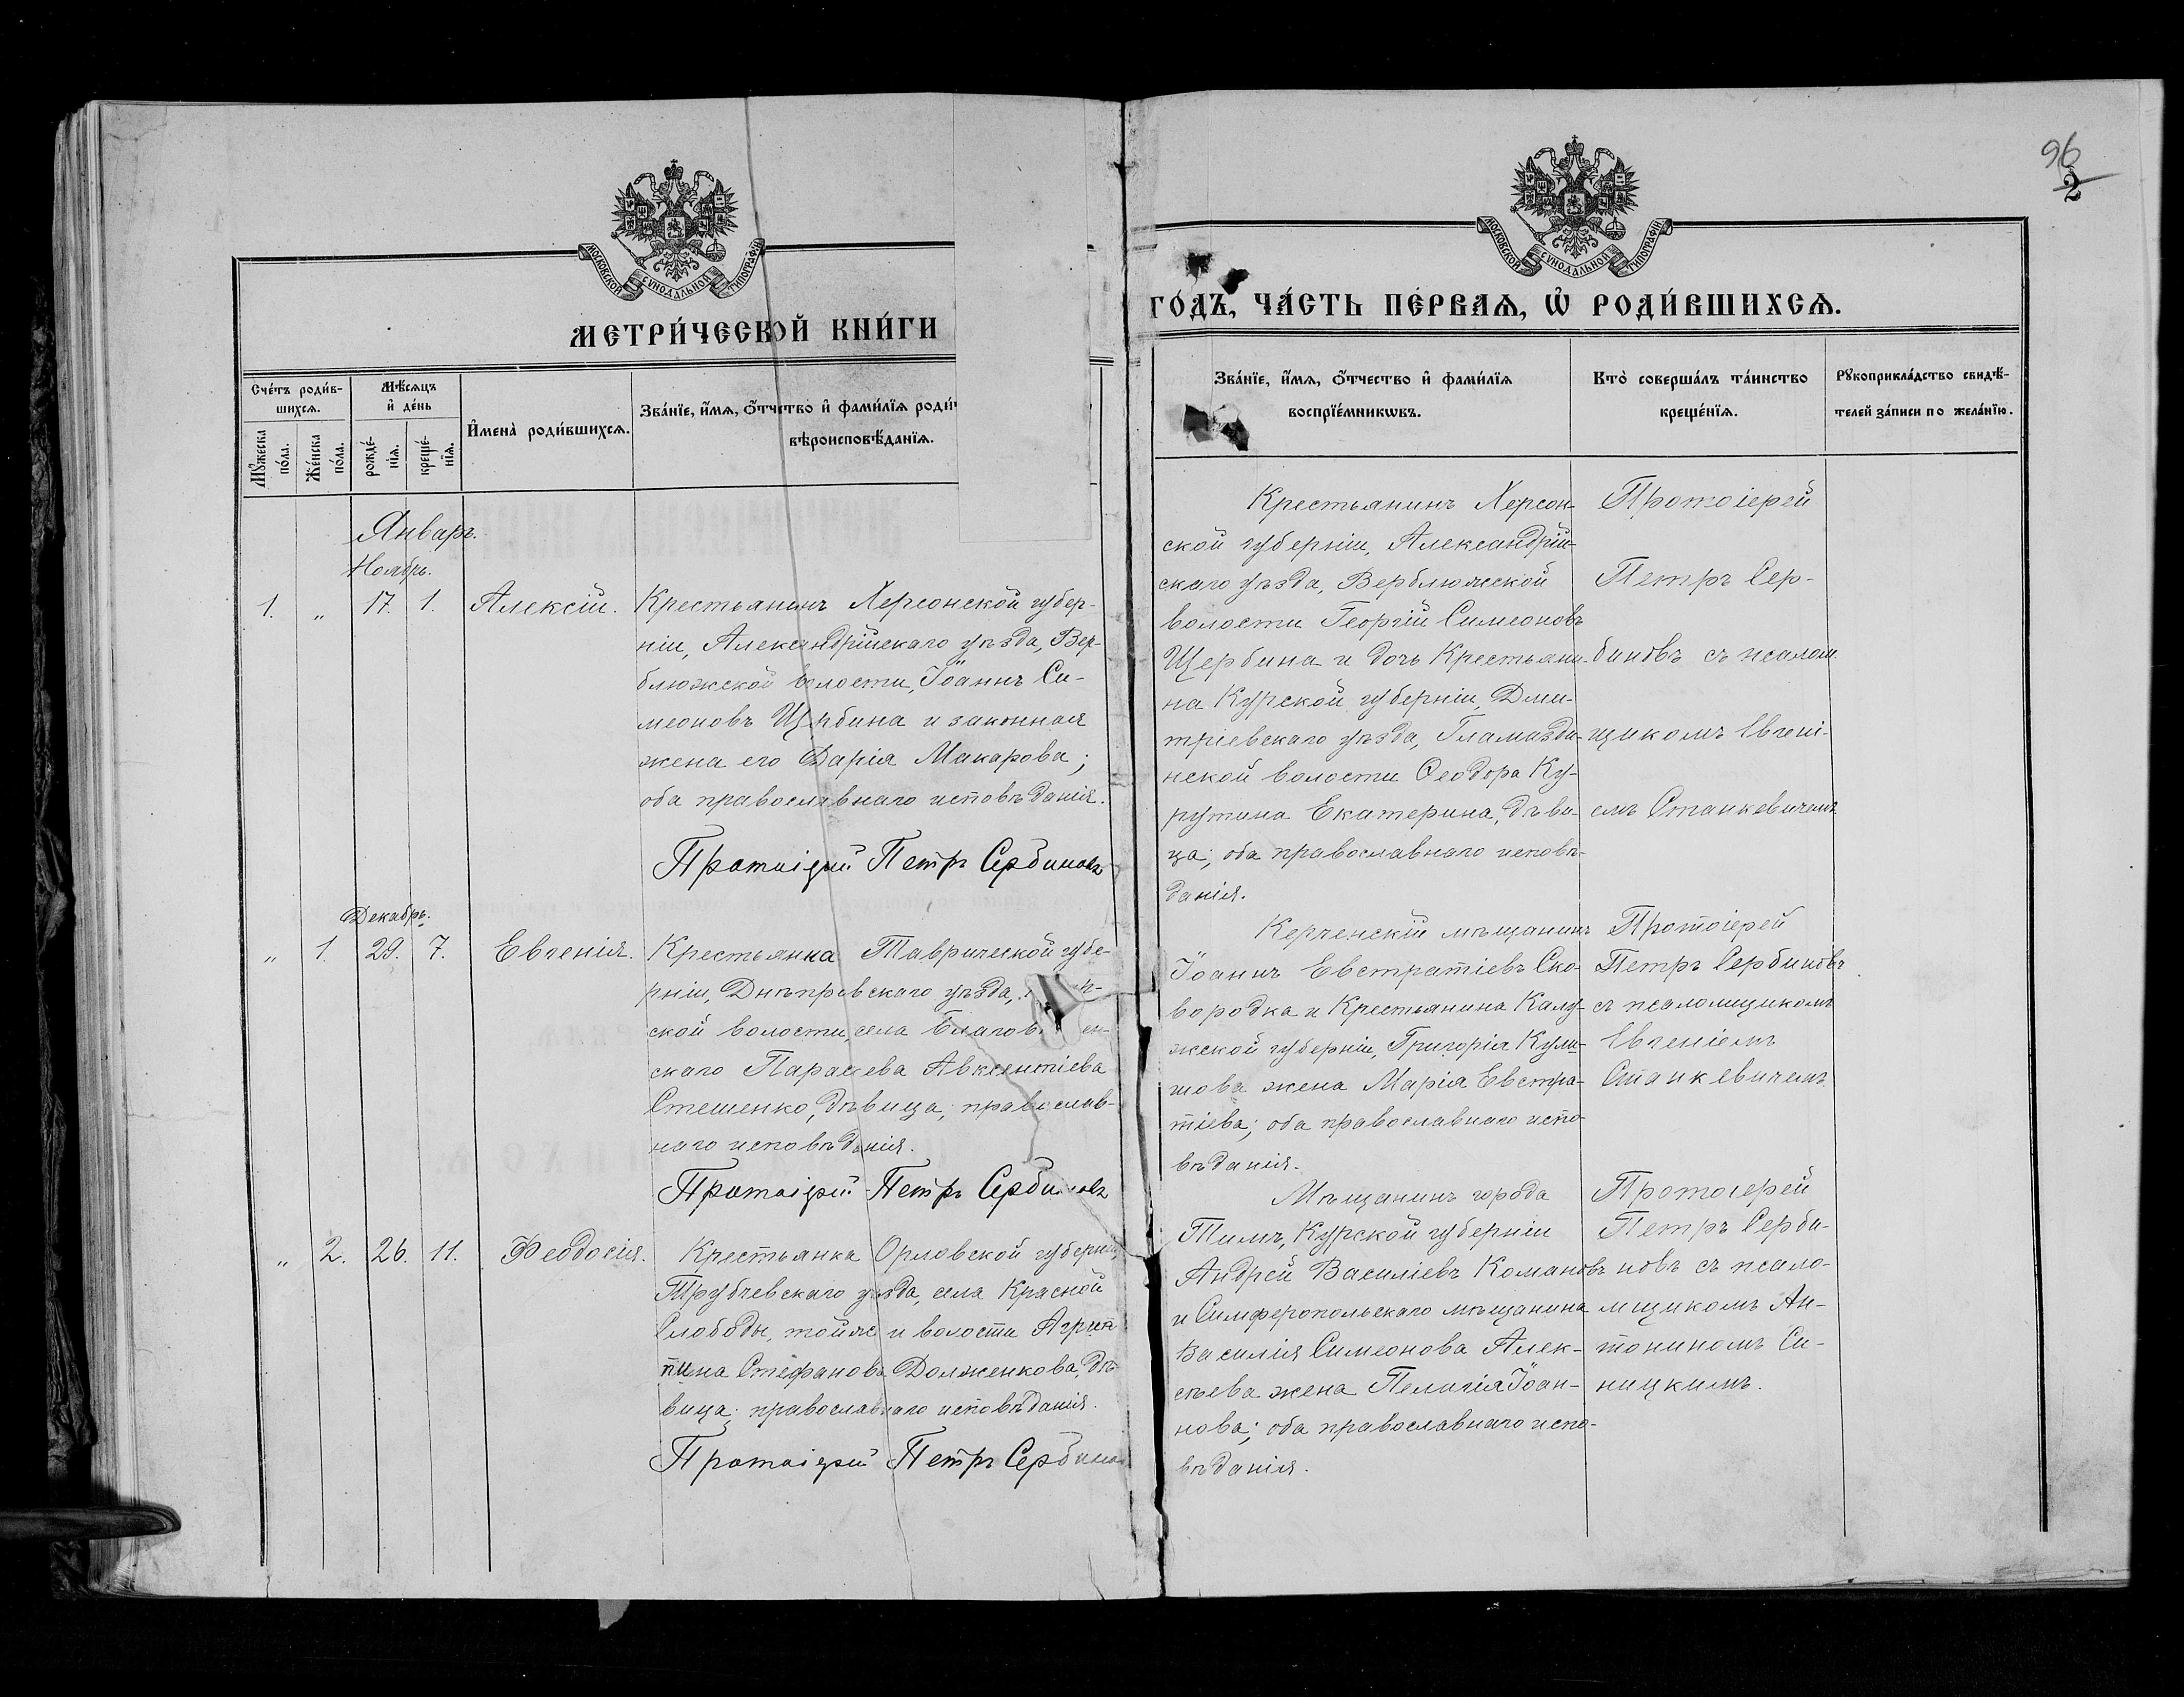 96
2
МОСКОВСКОЙ СѴНОДАЛЬНОЙ ТИПОГРАФІИ
МОСКОВСКОЙ СѴНОДАЛЬНОЙ ТИПОГРАФІИ
МЕТРИ́ЧЕСКОЙ КНИ́ГИ
ГО́ДЪ, ЧА́СТЬ ПЕ́РВАѦ, Ѽ РОДИ́ВШИХСѦ.
Сче́тъ роди́в-
шихсѧ.
Мꙋ́жеска
по́ла.
Же́нска
по́ла.
Мѣ́сѧцъ
и҆ де́нь
рожде́-
нїѧ.
креще́-
нїѧ.
И҆мена̀ роди́вшихсѧ.
Зва́нїе, и҆́мѧ, ѻ҆́тчество и҆ фами́лїѧ роди́
вѣроисповѣ́данїѧ.
Зва́нїе, и҆́мѧ, ѻ҆́тчество и҆ фами́лїѧ
воспрїе́мникѡвъ.
Кто̀ соверша́лъ та́инство
креще́нїѧ.
Рꙋкоприкла́дство свидѣ́-
телей за́писи по жела́нїю.
Январь.
Ноябрь.
1. " 17. 1. Алексій.
Крестьянинъ Херсонской губер-
ніи, Александрійскаго уѣзда, Вер-
блюжской волости, Іоаннъ Си-
меоновъ Щербина и законная
жена его Дарія Макарова;
оба православнаго исповѣданія.
Протоіерей Петръ Сербиновъ
Крестьянинъ Херсон-
ской губерніи, Александрій-
скаго уѣзда, Верблюжской
волости Георгій Симеоновъ
Щербина и дочь Крестьяни-
на Курской губерніи, Дми-
тріевскаго уѣзда, Гламазди-
нской волости Ѳеодора Ку-
рутина Екатерина, дѣви-
ца; оба православнаго исповѣ-
данія.
Протоіерей
Петръ Сер-
биновъ съ псалом-
щикомъ Евгені-
емъ Станкевичемъ.
Декабрь.
" 1. 29. 7. Евгенія.
Крестьянка Таврической губе-
рніи, Днѣпровскаго уѣзда,
ской волости, села
скаго Параскева Авксентіева
Стешенко, дѣвица; православ-
наго исповѣданія.
Протоіерей Петръ Сербиновъ
Керченскій мѣщанинъ
Іоаннъ Евстратіевъ Ско-
вородка и Крестьянина Калу-
жской губерніи, Григорія Кули-
шова жена Марія Евстра-
тіева; оба православнаго испо-
вѣданія.
Протоіерей
Петръ Сербиновъ
съ псаломщикомъ
Евгеніемъ
Станкевичемъ
" 2. 26. 11. Ѳеодосія.
Крестьянка Орловской губерніи,
Трубчевскаго уѣзда, села Красной
Слободы, тойже и волости Агрип-
пина Стефанова Долженкова, дѣ-
вица; православнаго исповѣданія.
Протоіерей Петръ Сербиновъ
Мѣщанинъ города
Тимъ, Курской губерніи
Андрей Василіевъ Комановъ
и Симферопольскаго мѣщанина
Василія Симеонова Алек-
сѣева жена Пелагія Іоан-
нова; оба православнаго испо-
вѣданія.
Протоіерей
Петръ Серби-
новъ съ псало-
мщикомъ Ан-
тониномъ Си-
ницкимъ.